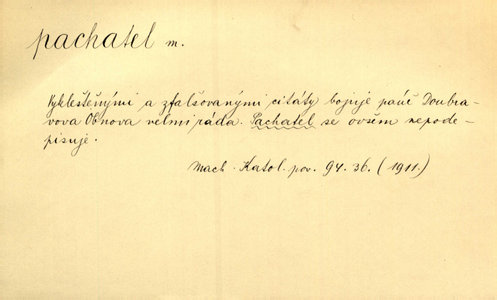 pachatel m.
Vykleštěnými a zfalšovanými citáty bojuje paní Doubra-
vova Obnova velmi ráda. Pachatel se ovšem nepode-
pisuje.
Mach. Katol. pov. 94. 36. (1911.)